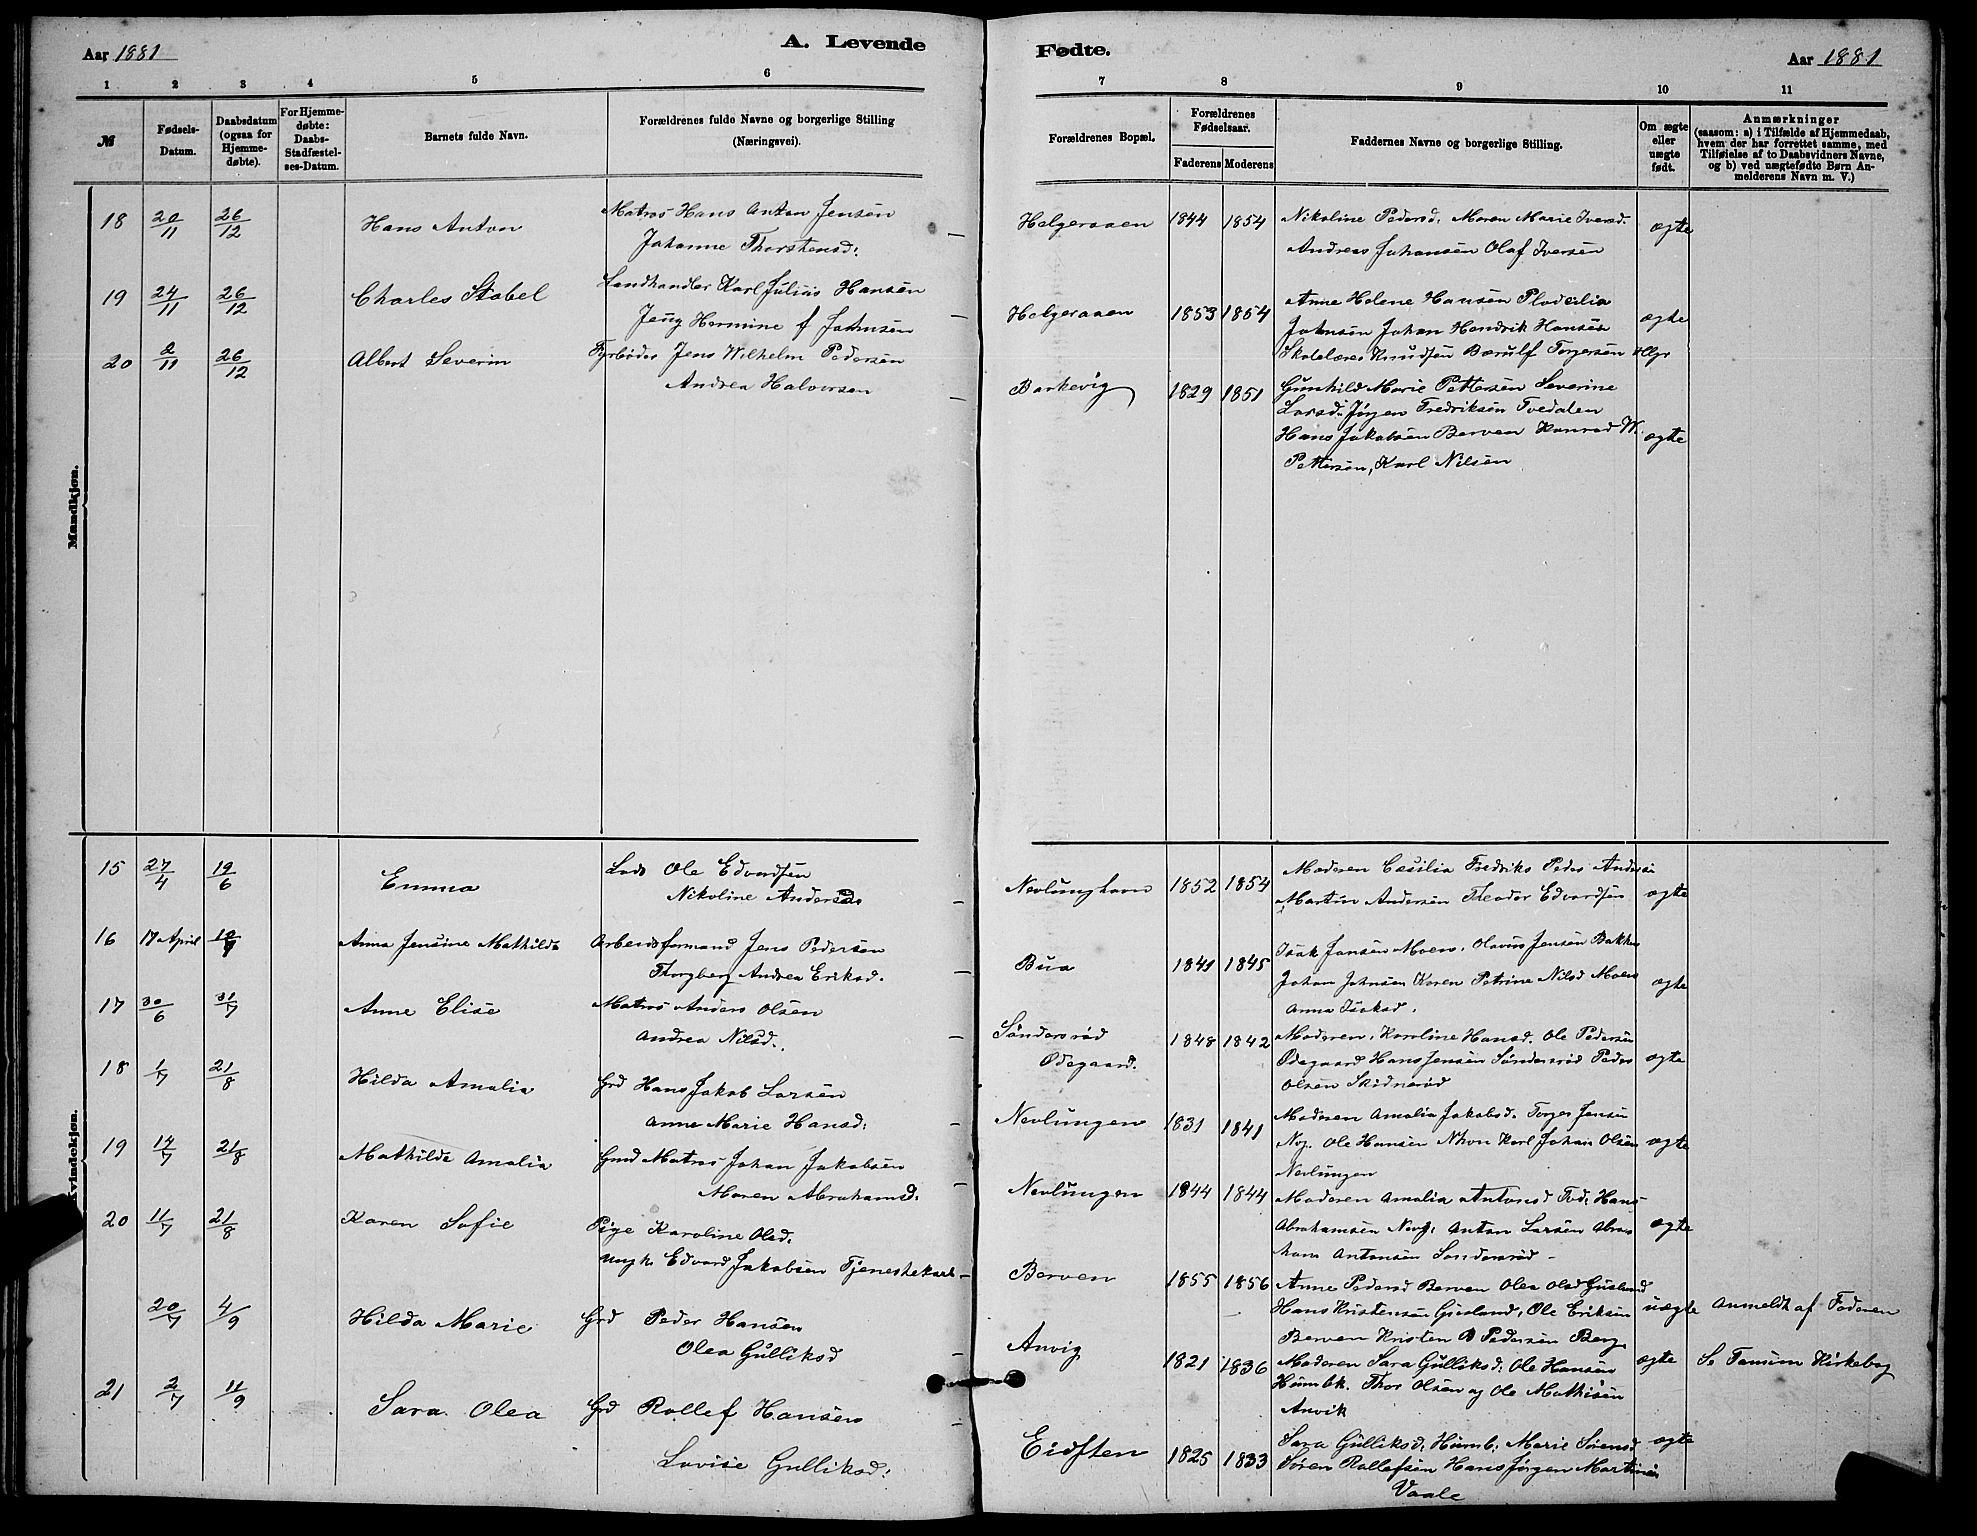 Aar 1881
A. Levende
Fødte.
Aar 1881
1 2 3 4 5 6
7 8 9 10 11
№
Fødsels-Datum.
Daabsdatum (ogsaa for Hjemme-døbte).
For Hjemme-døbte: Daabs-Stadfæstel-ses-Datum.
Barnets fulde Navn.
Forældrenes fulde Navne og borgerlige Stilling
(Næringsvei).
Forældrenes Bopæl.
Forældrenes Fødselsaar.
Faderens Moderens
Faddernes Navne og borgerlige Stilling.
Om ægte eller uægte født.
Anmærkninger
(saasom: a) i Tilfælde af Hjemmedaab,
hvem der har forrettet samme, med
Tilføielse af to Daabsvidners Navne,
og b) ved uægtefødte Børn An-
melderens Navn m. V.)
Mandkjøn.
18 20/11 26/12 Hans Anton Matros Hans Anton Jensen
Johanne Thorstensd:
Helgeraaen 1844 1854 Nikoline Pedersd. Maren Marie Iversd.
Andreas Johansen Olaf Iversen ægte
19 24/11 26/12 Charles Stabel Landhandler Karl Julius Hansen
Jeny Hermine f Johnsen
Helgeraaen 1853 1854 Anne Helene Hansen
Johnsen Johan Hendrik Hansen ægte
Skolelærer Knudsen Torgersen Hlgr
20 2/11 26/12 Albert Severin Fyrbøder Jens Wilhelm Pedersen
Andrea Halvorsen
Barkevig 1829 1851 Gunhild Marie Pettersen Severine
Larsd. Jørgen Fredriksen Tvedalen
Hans Jakobsen Berven Konrad W. ægte
Pettersen, Karl Nilsen
Kvindekjøn.
15 27/4 19/6 Emma Lods Ole Edvardsen
Nikoline Andersd
Nevlunghavn 1852 1854 Moderen Cecilia Fredriks Peder
Martin Andersen Theodor Edvardsen ægte
16 17 April Anna Jensine Mathilde Arbeidsformand Jens Pedersen
Thorgberg Andrea Eriksd.
Bua 1841 1845 Isak Jansen Moen. Olavus Jensen Bakken
Johan Johnsen Karen Petrine Nilsd Moen ægte
Anna Isaksd.
17 30/6 31/7 Anne Elise Matros Anders Olsen
Andrea Nilsd.
Søndersrød
Ødegaard.
1848 1842 Moderen, Karoline Hansd. Ole Pedersen
Ødegaard Hans Jensen Søndersrød Peder ægte
Olsen
18 1/7 21/8 Hilda Amalia Grd Hans Jakob Larsen
Anne Marie Hansd:
Nevlungen 1831 1841 Moderen Amalia Jakobsd. Torger Jensen
Nvg. Ole Hansen Nhvn Karl Johan Olsen ægte
Nevlungen
19 14/7 21/8 Mathilde Amalia Gmd Matros Johan Jakobsen
Maren Abrahamsd.
Nevlungen 1844 1844 Moderen Amalia Antonsd Tvd. Hans
Abrahamsen Nevg. Anton Larsen Abra- ægte
ham Antonsen Søndersrød -
20 11/7 21/8 Karen Sofie Pige Karoline Olsd.
Ungk. Edvard Jakobsen Tjenestekarl
Berven 1855 1856 Anne Pedersd Berven Olea Olsd Gusland
Hans Kristensen Gusland, Ole Eriksen uægte Anmeldt af Faderen
Berven Kristen B Pedersen Berg
20/7 4/9 Hilda Marie Grd Peder Hansen
Olea Gulliksd
Anvig 1821 1836 Moderen Sara Gulliksd. Ole Hansen ægte Se Tanum Kirkebog
Humbk. Thor Olsen og Ole Mathisen
Anvik
21 2/7 11/9 Sara Olea Grd Rollef Hansen
Lovise Gulliksd:
Eidsten 1825 1833 Sara Gulliksd. Humb. Marie Sørensd ægte
Søren Rollefsen Hans Jørgen
Vaale